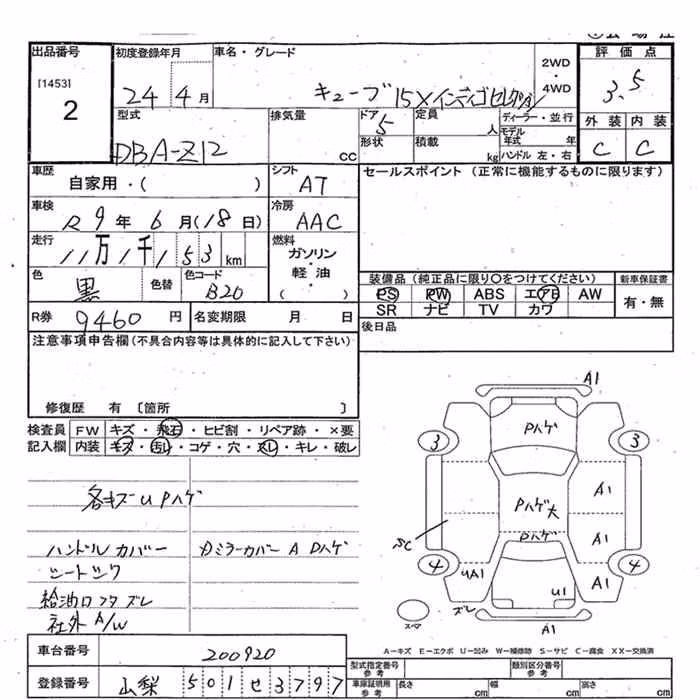 出品番号 初度登録年月 車名・グレード 2WD・4WD 評価点
[1453] 2 24 4月 キューブ 15X インディゴセレクション 3.5
型式 排気量 ドア 定員 ディーラー・並行 外装 内装
DBA-Z12 cc 5 人 モデル年式 年 C C
形状 積載 kg ハンドル 左・右
車歴 シフト セールスポイント (正常に機能するものに限ります)
自家用・( ) AT
車検 冷房
R 9年 6月(18日) AAC
走行 燃料
11万1千153 km ガソリン・軽油・( )
色 色替 色コード 装備品(純正品に限り○をつけてください) 新車保証書
黒 B20 PS PW ABS エアB AW 有・無
SR ナビ TV カワ
R券 9460円 名変期限 月 日 後日品
注意事項申告欄(不具合内容等は具体的に記入して下さい)
修復歴 有 [箇所 ]
検査員 FW キズ・飛石・ヒビ割・リペア跡・×要
記入欄 内装 キズ・汚レ・コゲ・穴・スレ・キレ・破レ
A1
Pハゲ
3 3
各キズ U Pハゲ
A1
Pハゲ大
Pハゲ
SC A1
ハンドルカバー カミラーカバー A Pハゲ
シートシワ
4 UA1 A1 4
給油口フタズレ
U1
ズレ
社外A/W
スペア A1
A-キズ E-エクボ U-凹み W-補修跡 S-サビ C-腐食 XX-交換済
車台番号 200920 型式指定番号 参考 類別区分番号 参考
登録番号 山梨 501 せ 3797 車庫証明用 参考 長さ cm 幅 cm 高さ cm